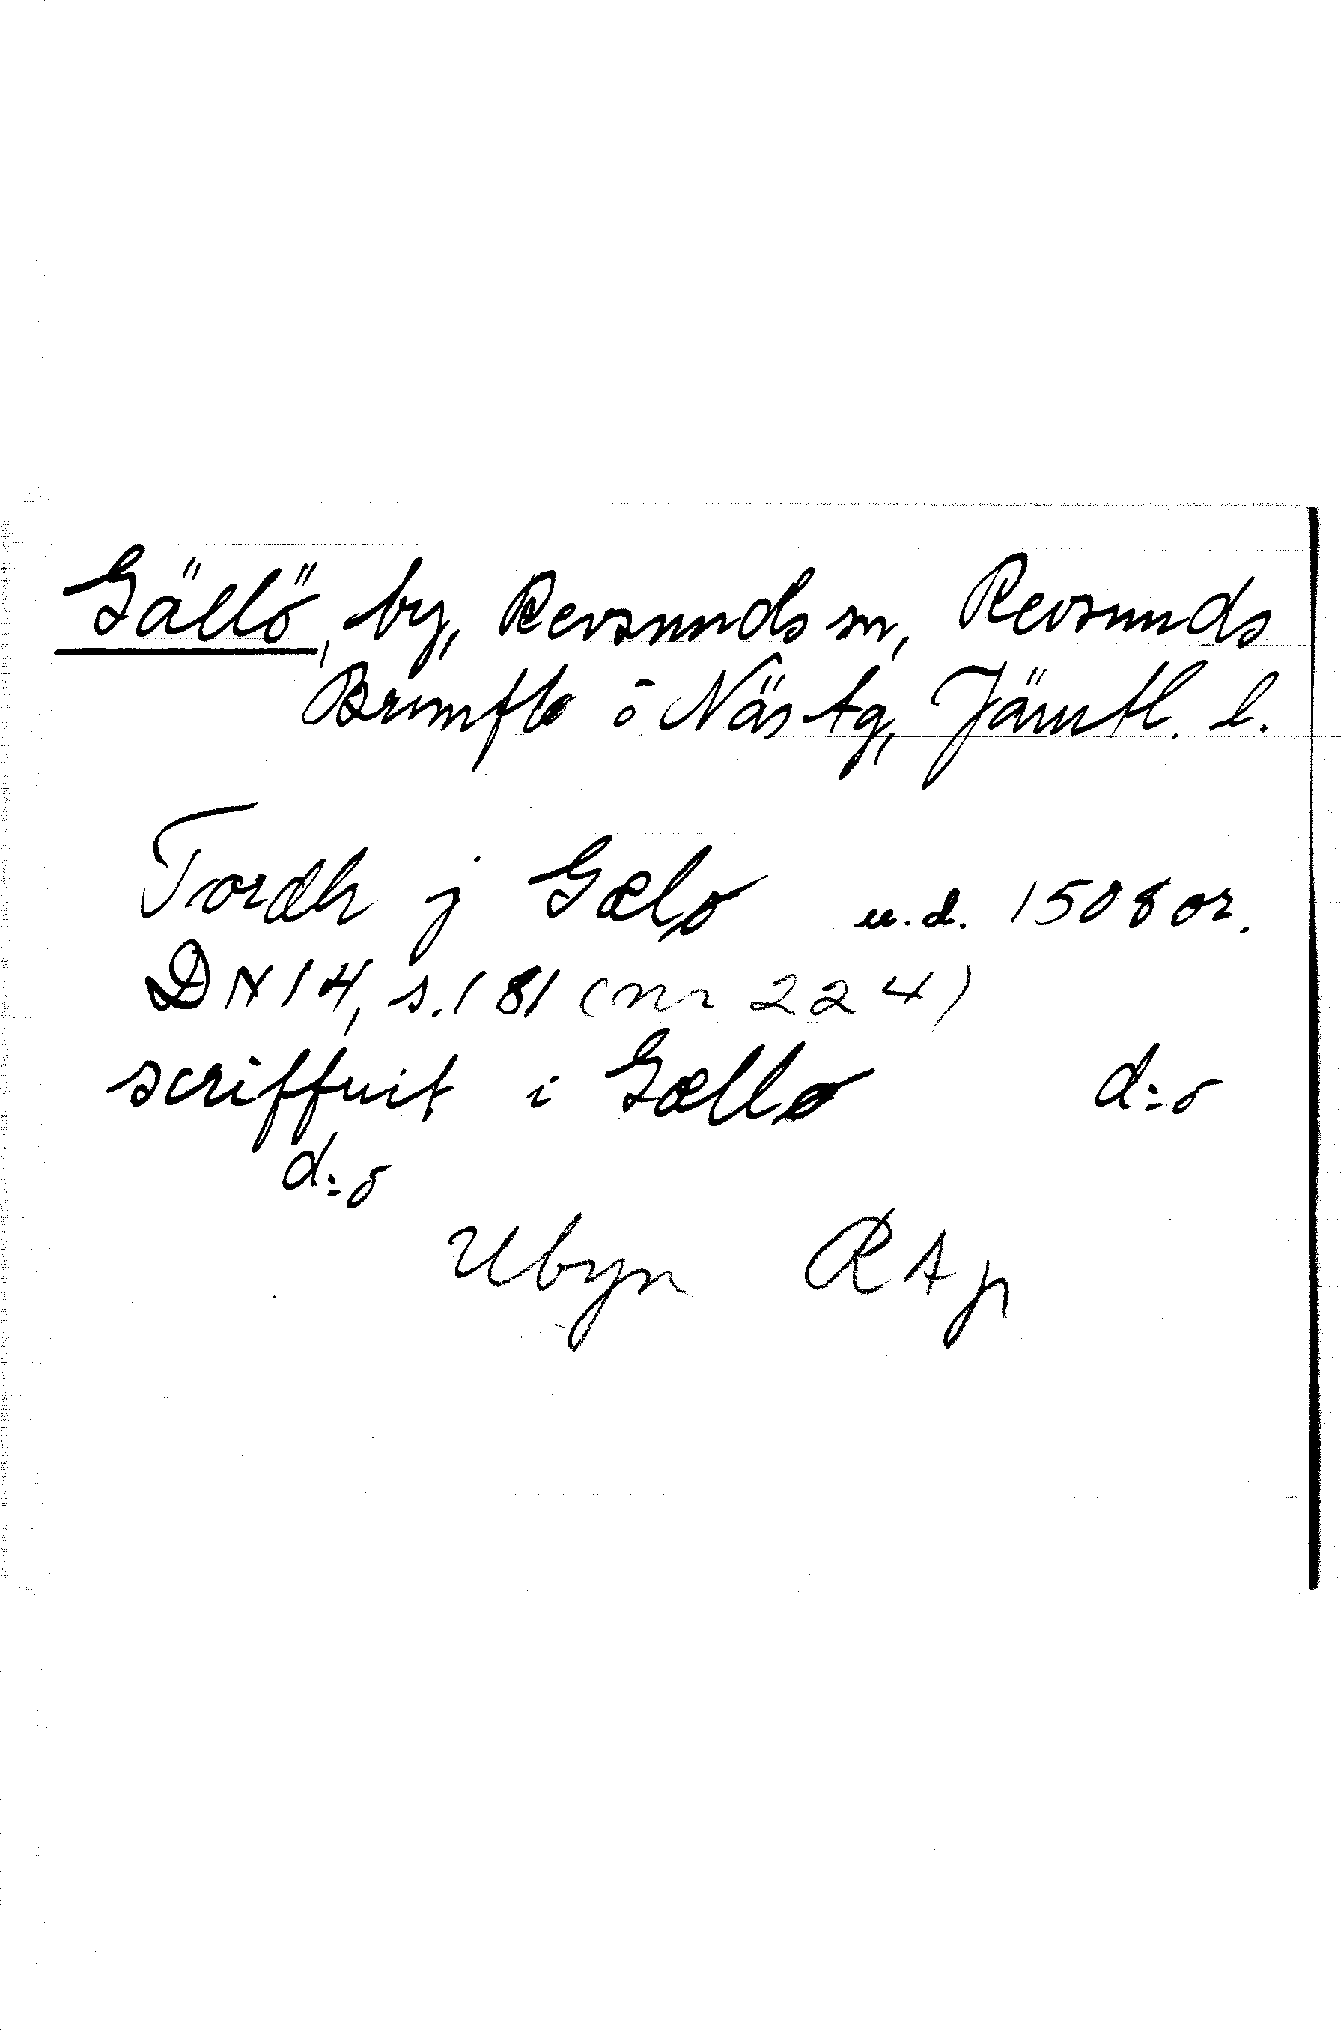 Gällö, by, Revsunds sn, Revsunds
Brunflo o Näs tg, Jämtl. l.
Tordh j Gælø u.d. 1508 or.
DN 14, s. 181 (nr 224)
scriffuit i Gællø d:o
d:o
Ubyn RAp